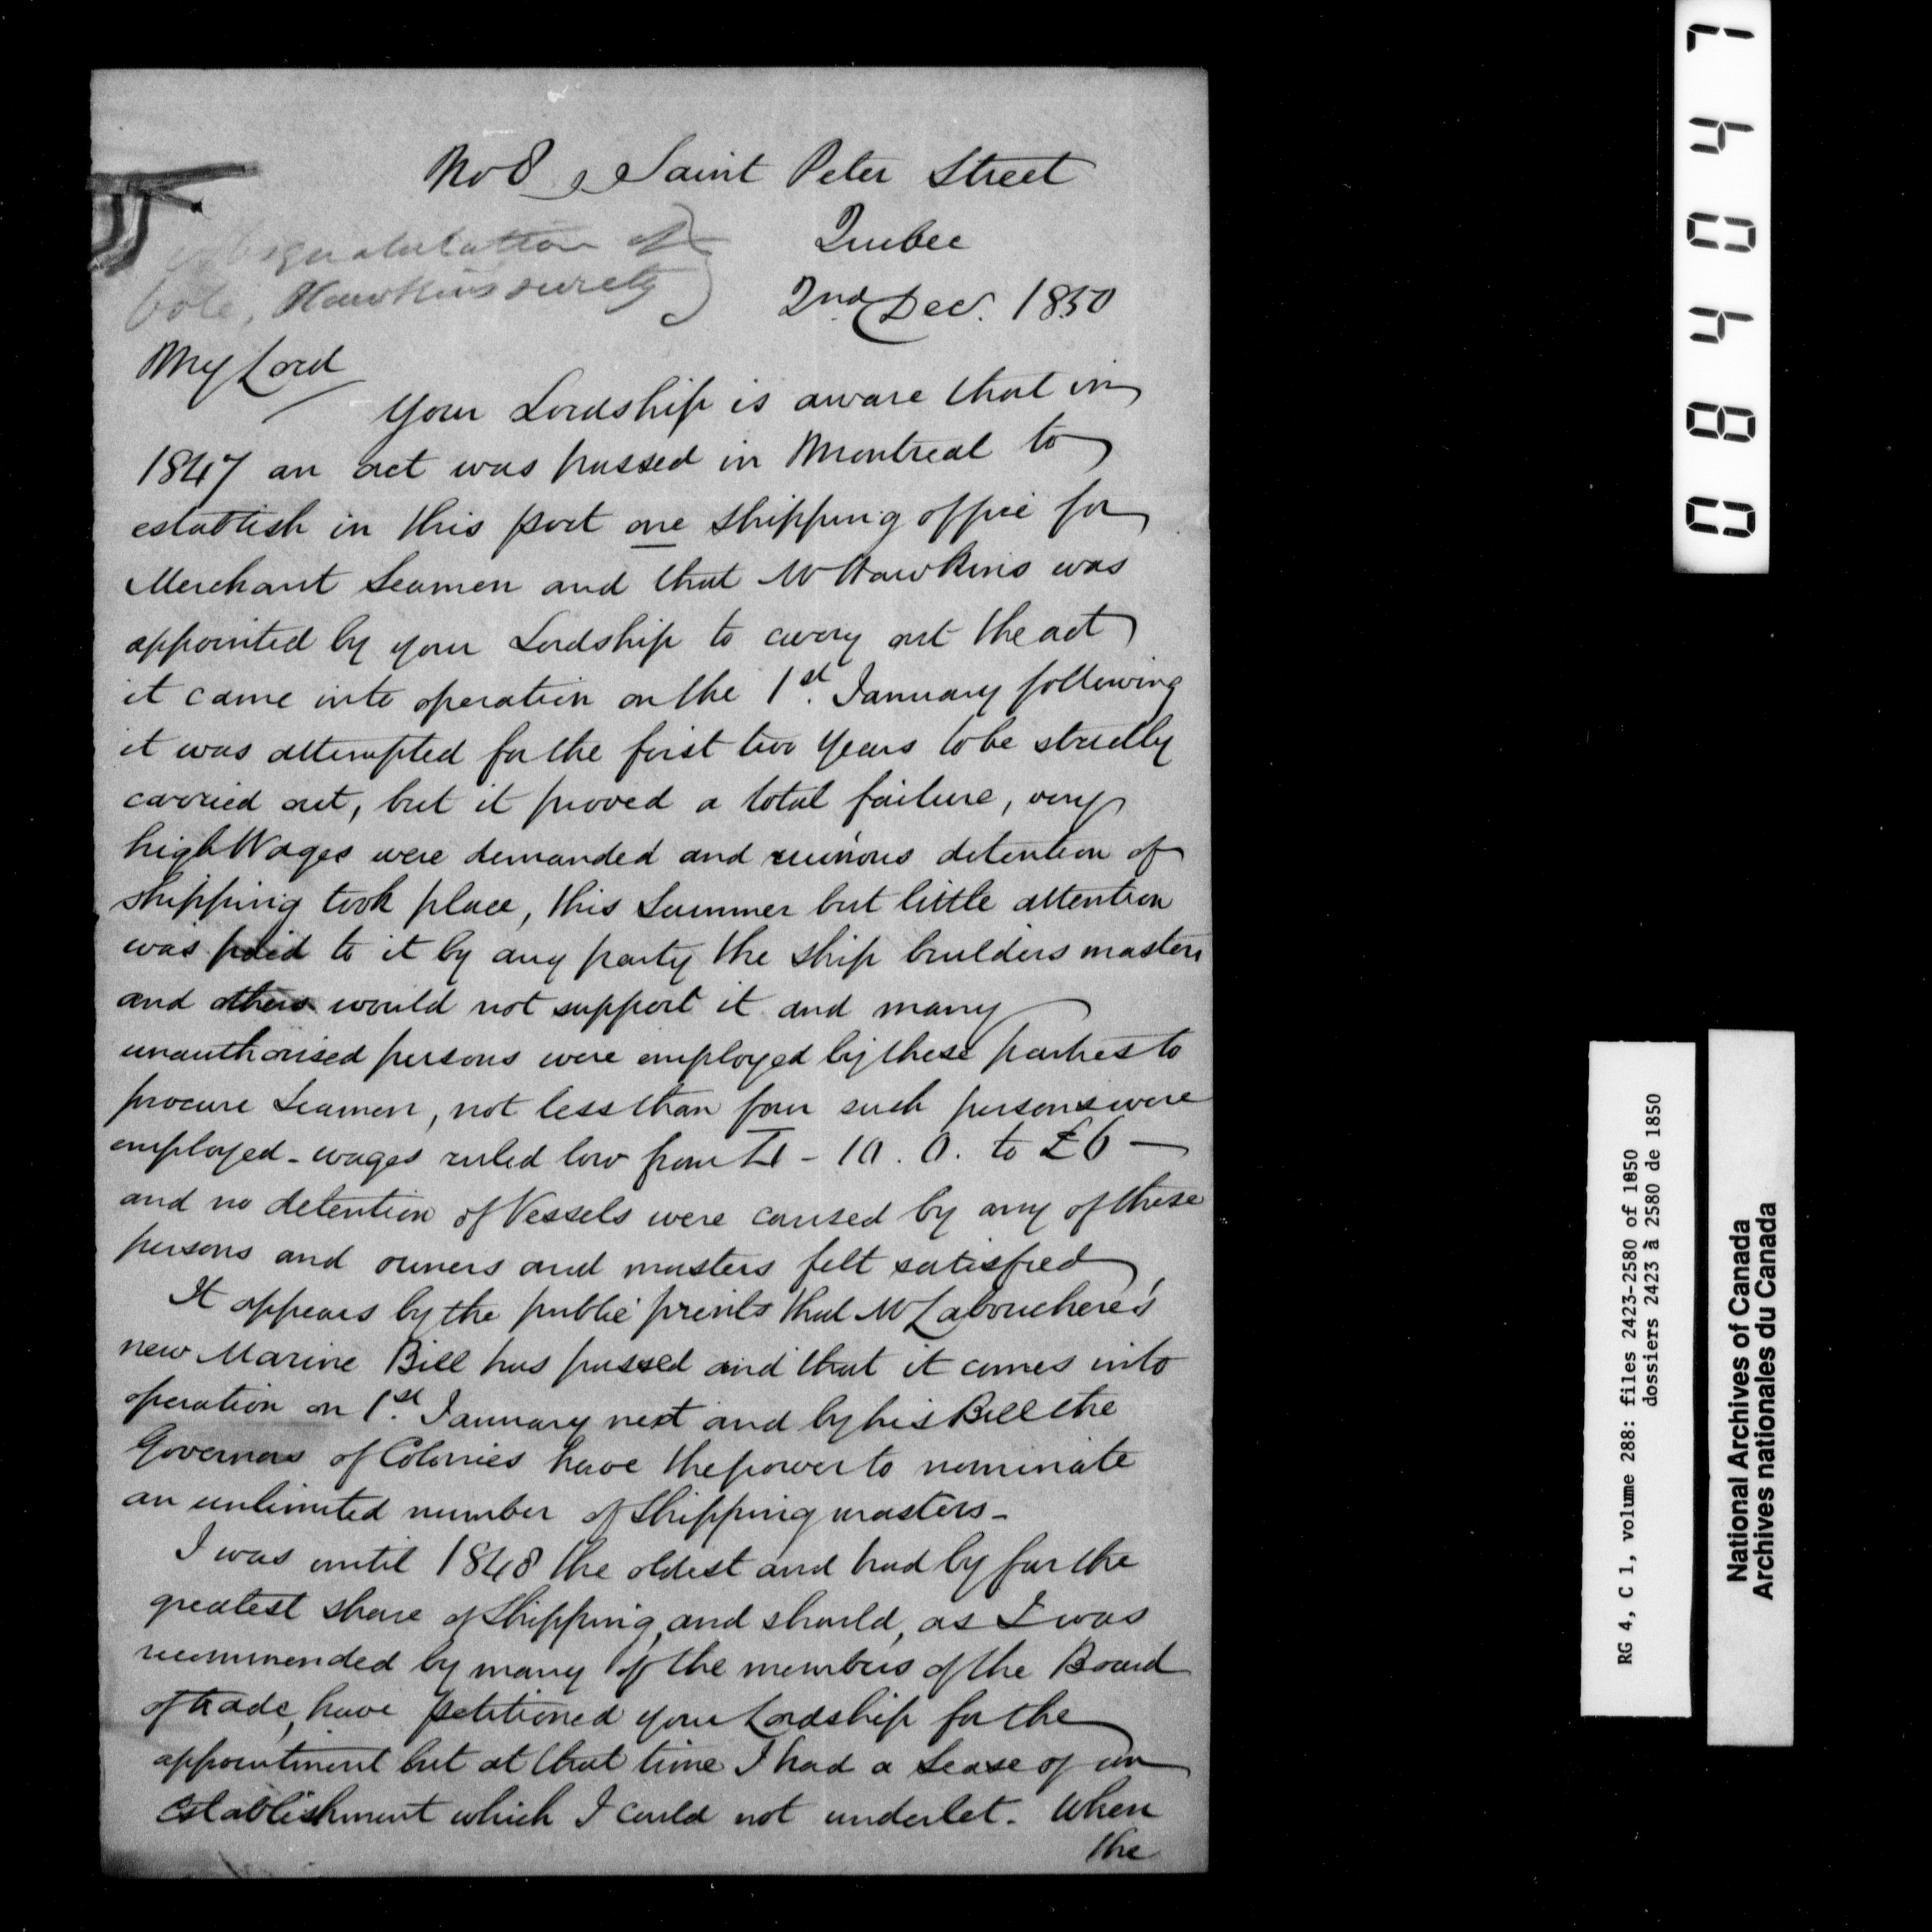 No 8, Saint Peter Street
Quebec
2nd Dec. 1850
of
Cole, Hawkins surety
My Lord
Your Lordship is aware that in
1847 an act was passed in Montreal to
establish in this port one shipping office for
Merchant Seamen and that Mr Hawkins was
appointed by your Lordship to carry out the act
it came into operation on the 1st. January following
it was attempted for the first two years to be strictly
carried out, but it proved a total failure, very
high Wages were demanded and ruinous detention of
shipping took place, this Summer but little attention
was paid to it by any party the ship builders masters
and others would not support it and many
unauthorised persons were employed by these parties to
procure Seamen, not less than four such persons were
employed - wages ruled low from - 10. 0. to £6 —
and no detention of Vessels were caused by any of these
persons and owners and masters felt satisfied
It appears by the public prints that Mr Labouchere's
new Marine Bill has passed and that it comes into
operation on 1st. January next and by his Bill the
Governors of Colonies have the power to nominate
an unlimited number of Shipping masters -
I was until 1848 the oldest and had by far the
greatest share of Shipping, and should, as I was
recommended by many of the members of the Board
of trade, have petitioned your Lordship for the
appointment but at that time I had a Lease of an
establishment which I could not underlet. When
the
084047
RG 4, C 1, volume 288: files 2423-2580 of 1850
dossiers 2423 à 2580 de 1850
National Archives of Canada
Archives nationales du Canada